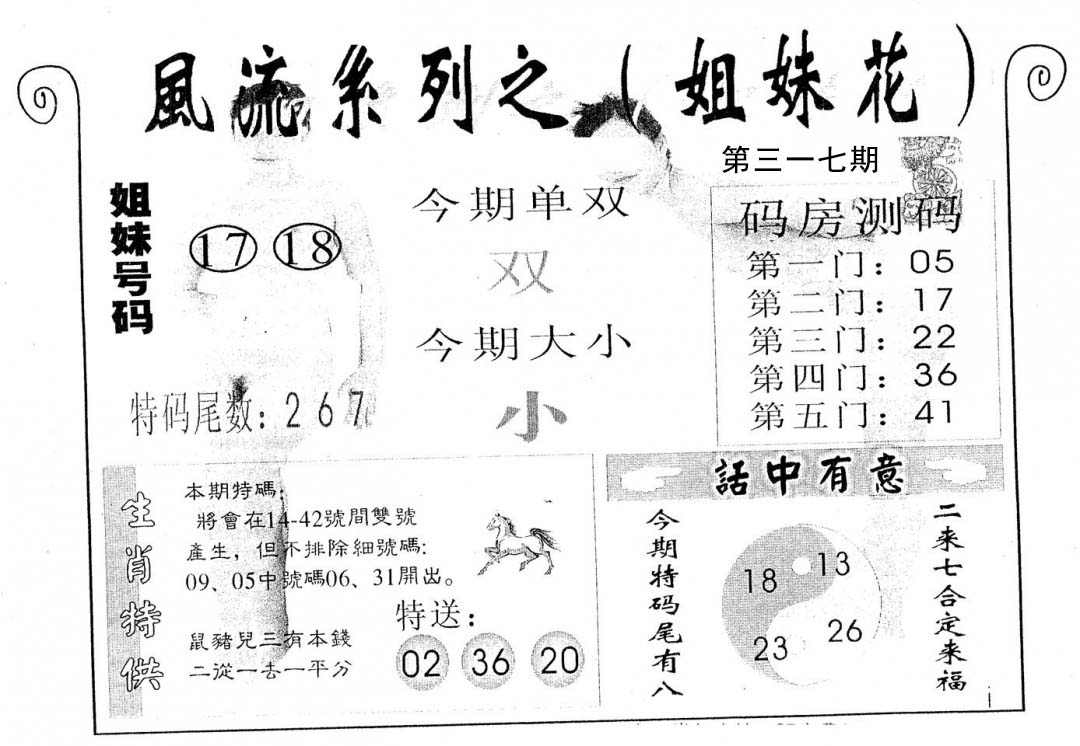 風流系列之（姐妹花）
第三一七期
姐妹号码
17 18
特码尾数：267
今期单双
双
今期大小
小
码房测码
第一门：05
第二门：17
第三门：22
第四门：36
第五门：41
生肖特供
本期特碼：
將會在14-42號間雙號
產生，但不排除細號碼：
09、05中號碼06、31開出。
鼠豬兒三有本錢
二從一去一平分
特送：
02 36 20
話中有意
今期特码尾有八
18 13
23 26
二来七合定来福